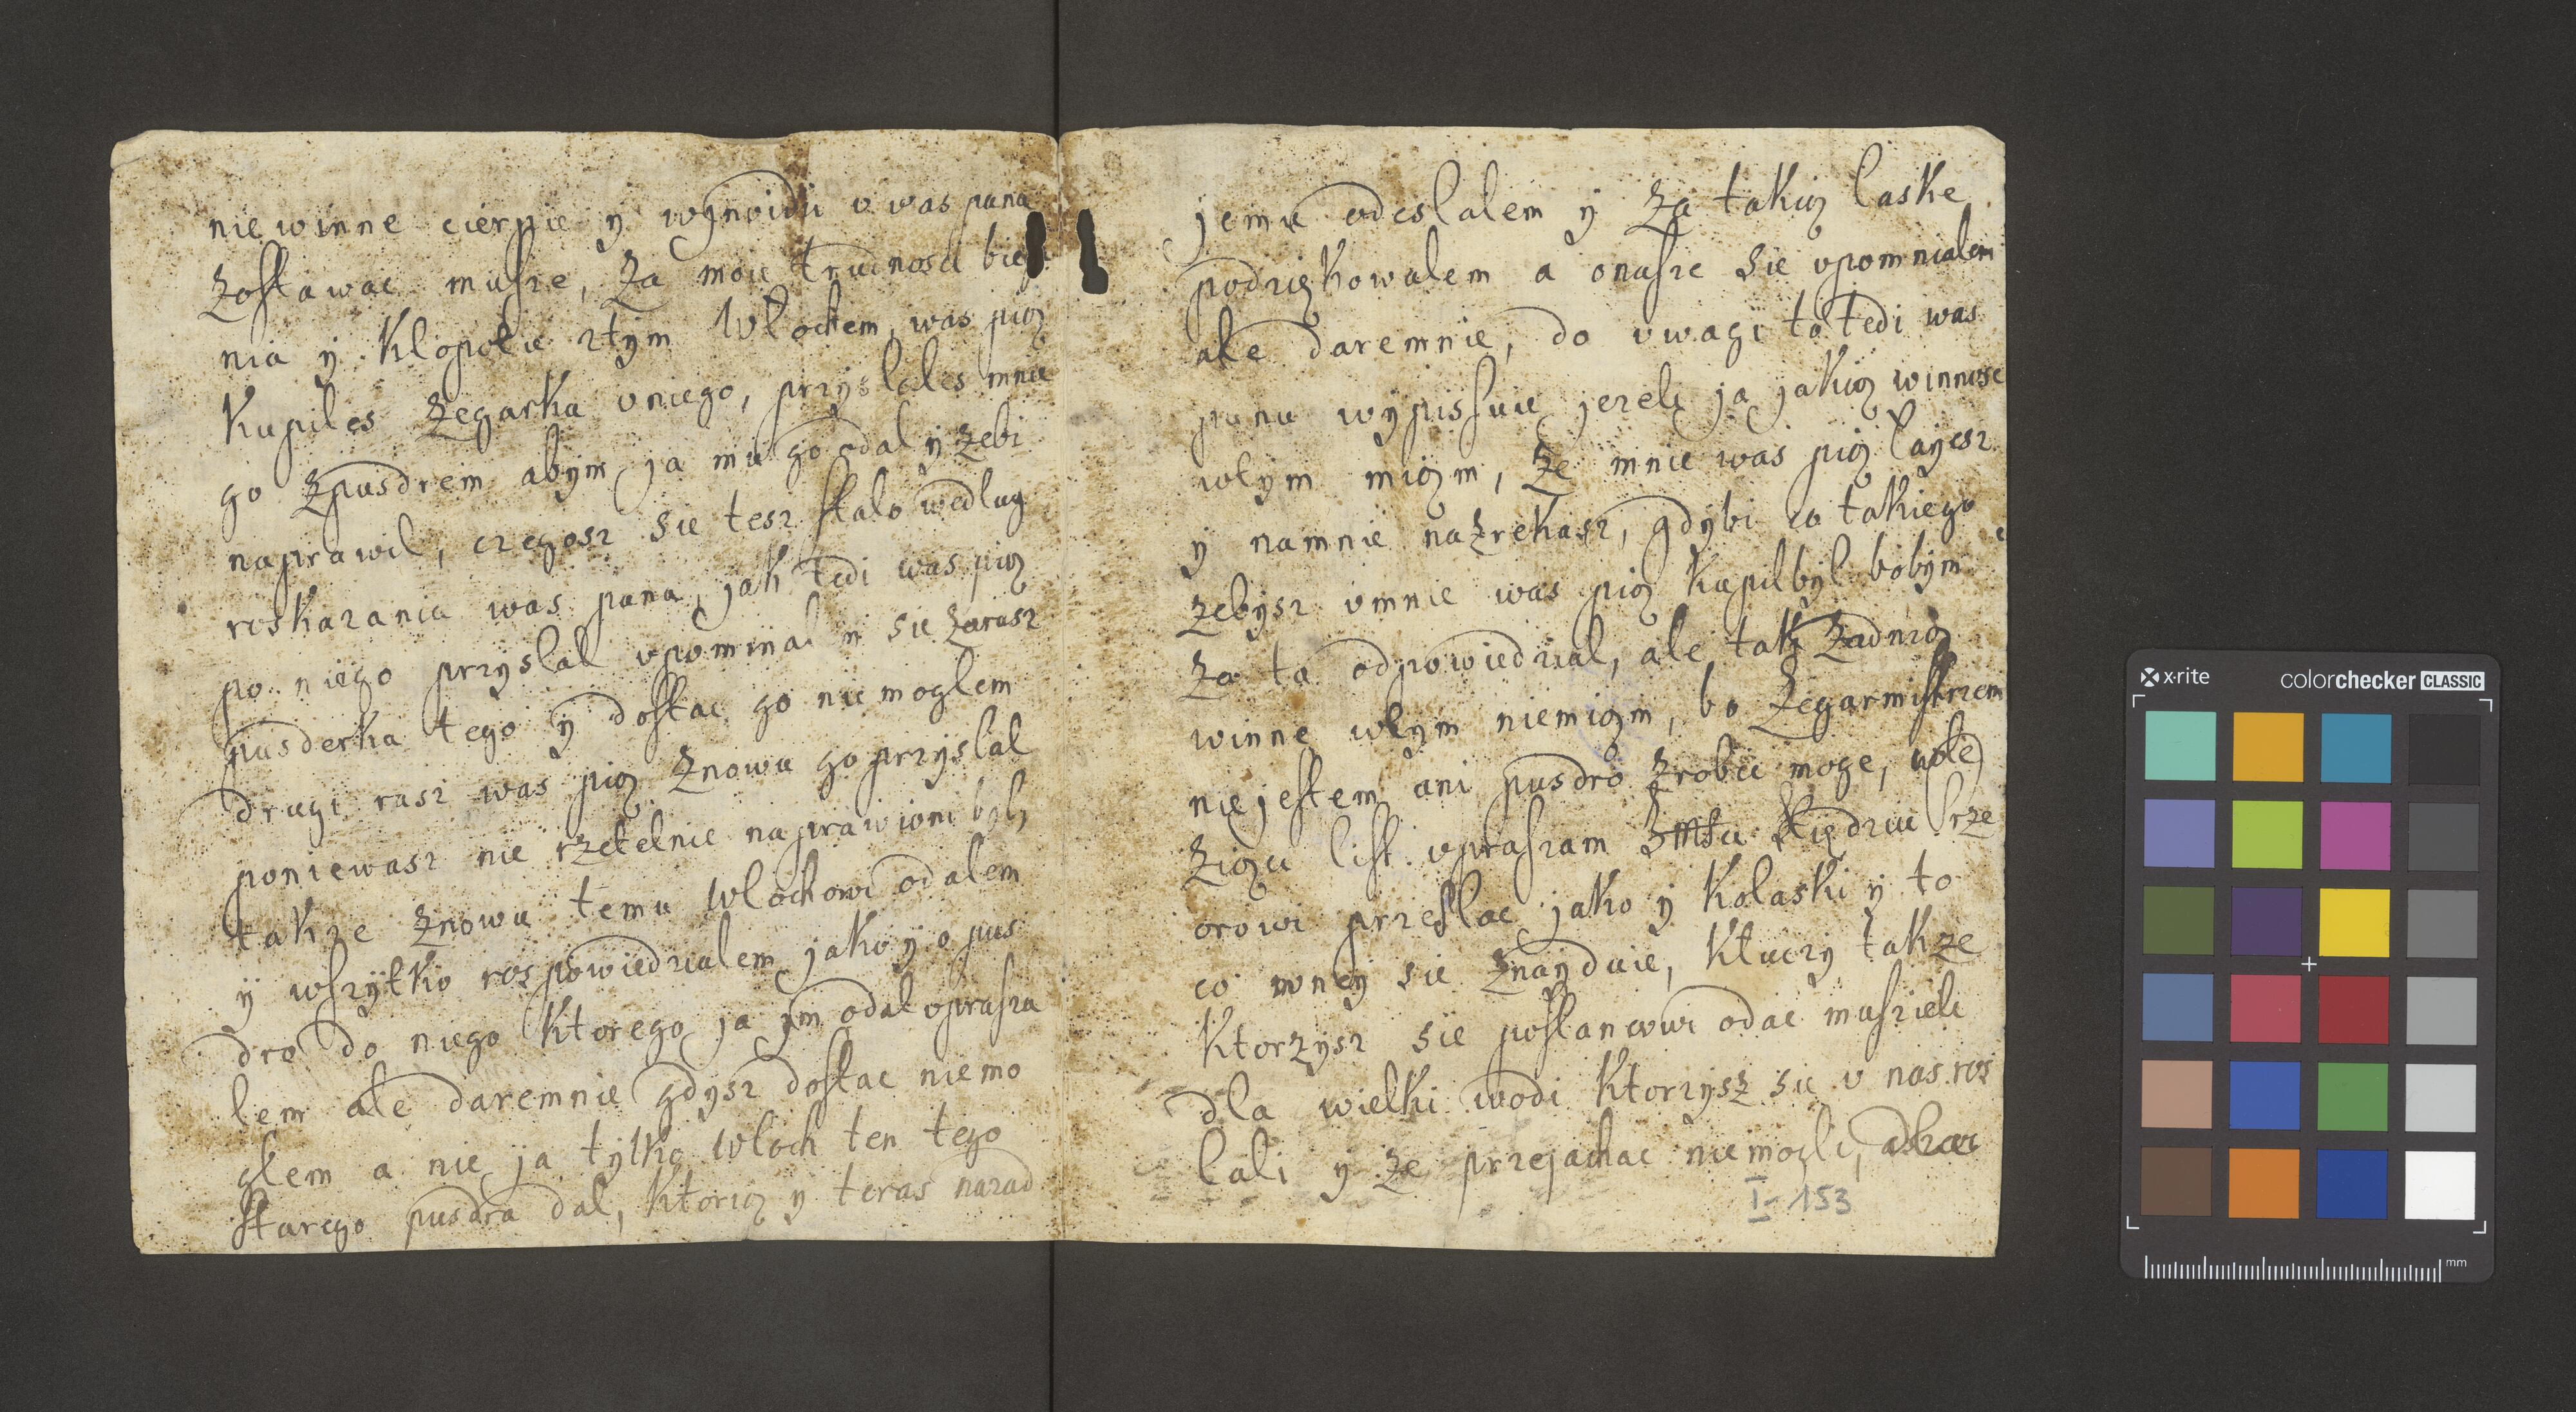 niewinne cierpie ÿ wÿnvidii v was pana
Zostawac musze, Za moie trudnosci bie
nia ÿ Klopotu ztÿm Wlochem, was piǫ
Kupiles Zegarka vniego, przÿslales mnie
go Zpusdrem abÿm ja mu go odal ÿ Zebi
naprawil, czegosz sie tesz stalo wedlug
roskazania was pana, jak tedi was piǫ
po niego przÿslal upominal m sie Zarasz
pusderka tego ÿ dostac go nie moglem
drugi rasz was piǫ Znowu go przÿslal
poniewasz nie rzetelnie naprawioni bÿl,
takze Znowu temu Wlochowi odalem
ÿ wszÿtko rospowiedzialem jako ÿ o pus
dro do niego Ktorego ja ÿm odal uprasza
lem ale daremnie gdÿsz dostac niemo
glem a nie ja tÿlko Wloch ten tego
starego pusdra dal, Ktoriǫ ÿ teras nazad
jemu odeslalem ÿ Za takiǫ laske
podziękowalem a onasze sie vpomnialem
ale daremnie, do vwagi to tedi was
panu wÿpissuie jezeli ja jakiǫ winnosc
wtÿm miǫm, Ze mnie was piǫ layesz
ÿ namnie naZrekasz, gdÿbi co takiego
Zebÿsz vmnie was piǫ Kupil bÿl bobÿm
Za to odpowiedzial, ale tak Zadniǫ
winne wtÿm niemiǫm, bo Zegarmistrzem
niejestem ani pusdro Zrobic moge,
list vpraszam
orowi przeslac jako ÿ Kolaski ÿ to
co mneÿ sie Znaÿduie, Kluczÿ takze
Ktorzÿsz sie poslancowi odac musieli
dla wielki wodi Ktorzÿsz sie v nas ros
lali ÿ Ze przejachac niemogli,
I-153
x-rite colorchecker CLASSIC
mm